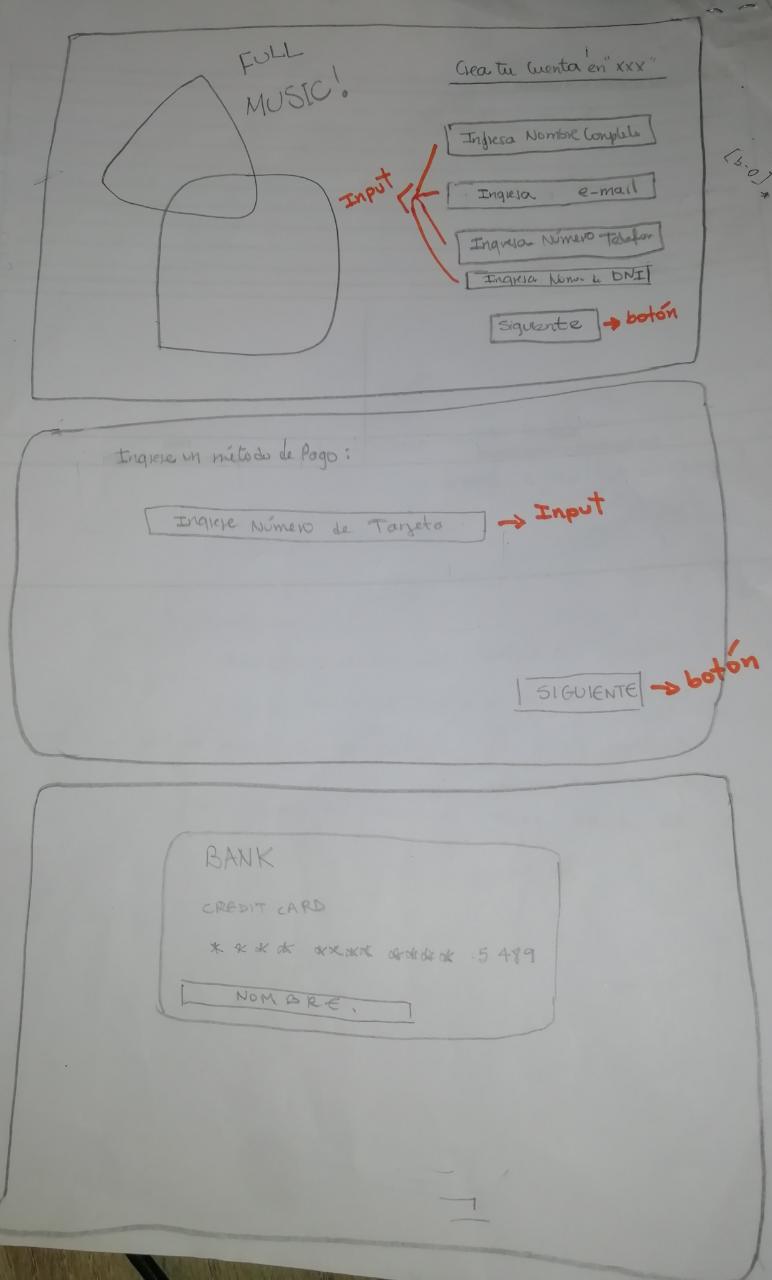 FULL
MUSIC!
Crea tu cuenta en "xxx"
Ingresa Nombre Completo
Input
Ingresa e-mail
Ingresa Número
Ingresa DNI
Siguiente → botón
[b-0] *
Ingrese un método de Pago:
Ingrese Número de Tarjeta → Input
SIGUIENTE → botón
BANK
CREDIT CARD
**** **** **** 5489
NOMBRE.